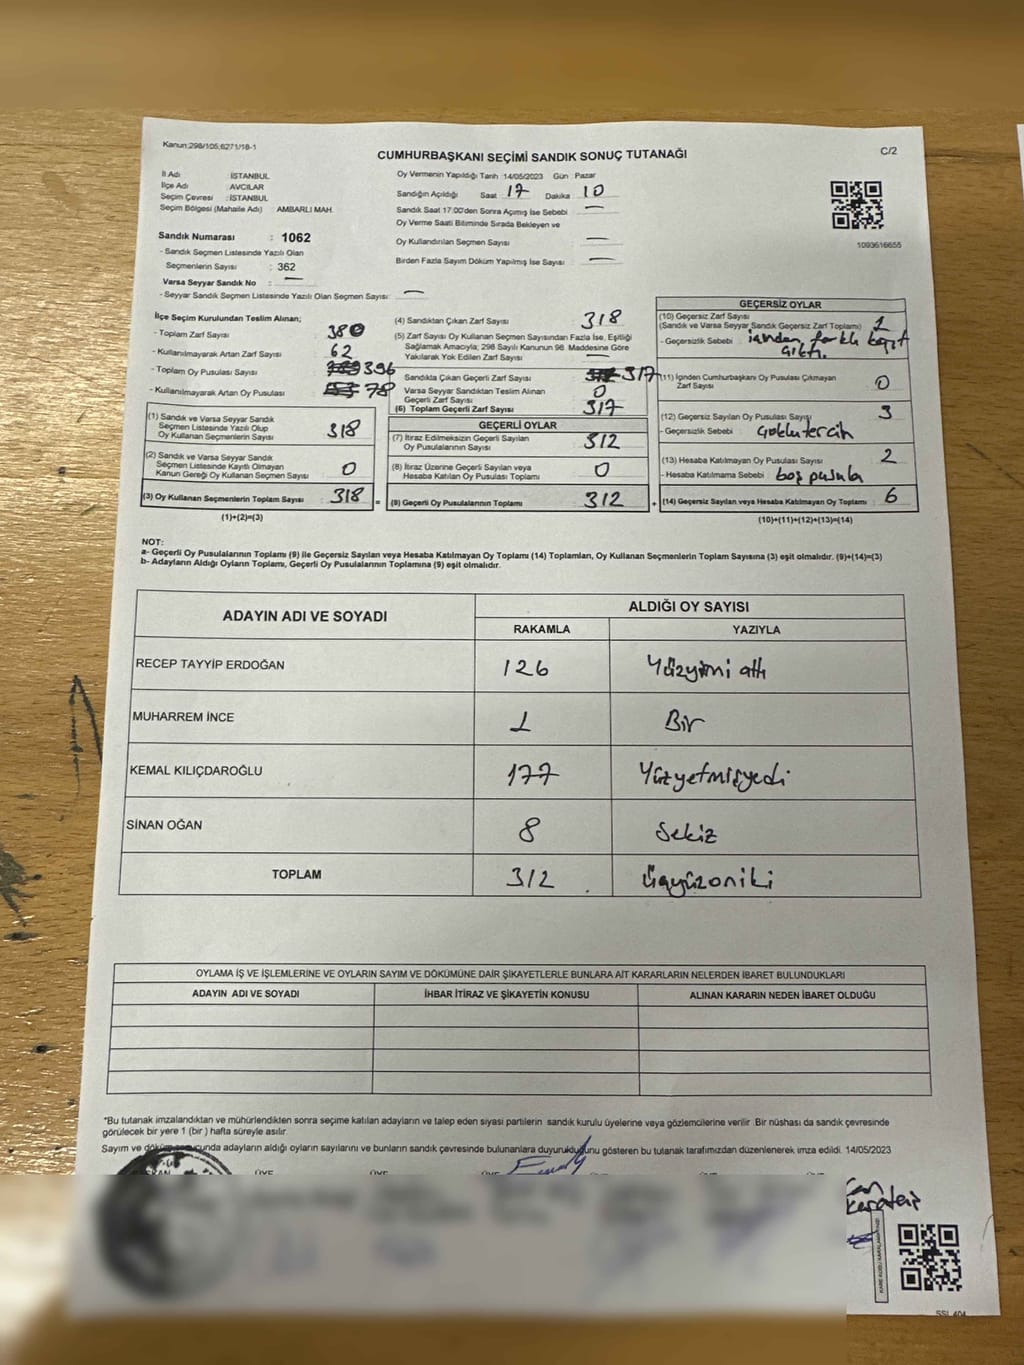 Kanun:298/105;6271/18-1
CUMHURBAŞKANI SEÇİMİ SANDIK SONUÇ TUTANAĞI
C/2
İl Adı : İSTANBUL
İlçe Adı : AVCILAR
Seçim Çevresi : İSTANBUL
Seçim Bölgesi (Mahalle Adı) : AMBARLI MAH.
Sandık Numarası : 1062
- Sandık Seçmen Listesinde Yazılı Olan
Seçmenlerin Sayısı : 362
Varsa Seyyar Sandık No : —
- Seyyar Sandık Seçmen Listesinde Yazılı Olan Seçmen Sayısı : —
Oy Vermenin Yapıldığı Tarih :14/05/2023 Gün : Pazar
Sandığın Açıldığı Saat 17 Dakika 10
Sandık Saat 17:00'den Sonra Açımış İse Sebebi —
Oy Verme Saati Bitiminde Sırada Bekleyen ve
Oy Kullandırılan Seçmen Sayısı —
Birden Fazla Sayım Döküm Yapılmış İse Sayısı —
1093616655
İlçe Seçim Kurulundan Teslim Alınan;
- Toplam Zarf Sayısı 380
- Kullanılmayarak Artan Zarf Sayısı 62
- Toplam Oy Pusulası Sayısı 396
- Kullanılmayarak Artan Oy Pusulası 78
(1) Sandık ve Varsa Seyyar Sandık
Seçmen Listesinde Yazılı Olup
Oy Kullanan Seçmenlerin Sayısı 318
(2) Sandık ve Varsa Seyyar Sandık
Seçmen Listesinde Kayıtlı Olmayan
Kanun Gereği Oy Kullanan Seçmen Sayısı 0
(3) Oy Kullanan Seçmenlerin Toplam Sayısı 318 =
(1)+(2)=(3)
(4) Sandıktan Çıkan Zarf Sayısı 318
(5) Zarf Sayısı Oy Kullanan Seçmen Sayısından Fazla İse, Eşitliği
Sağlamak Amacıyla; 298 Sayılı Kanunun 98. Maddesine Göre
Yakılarak Yok Edilen Zarf Sayısı —
Sandıkta Çıkan Geçerli Zarf Sayısı 317
Varsa Seyyar Sandıktan Teslim Alınan
Geçerli Zarf Sayısı 0
(6) Toplam Geçerli Zarf Sayısı 317
GEÇERLİ OYLAR
(7) İtiraz Edilmeksizin Geçerli Sayılan
Oy Pusulalarının Sayısı 312
(8) İtiraz Üzerine Geçerli Sayılan veya
Hesaba Katılan Oy Pusulası Toplamı 0
(9) Geçerli Oy Pusulalarının Toplamı 312 +
GEÇERSİZ OYLAR
(10) Geçersiz Zarf Sayısı
(Sandık ve Varsa Seyyar Sandık Geçersiz Zarf Toplamı) 1
- Geçersizlik Sebebi : içinden farklı kağıt
çıktı.
(11) İçinden Cumhurbaşkanı Oy Pusulası Çıkmayan
Zarf Sayısı 0
(12) Geçersiz Sayılan Oy Pusulası Sayışı 3
- Geçersizlik Sebebi : Çoklu tercih
(13) Hesaba Katılmayan Oy Pusulası Sayısı 2
- Hesaba Katılmama Sebebi : boş pusula
(14) Geçersiz Sayılan veya Hesaba Katılmayan Oy Toplamı 6
(10)+(11)+(12)+(13)=(14)
NOT:
a- Geçerli Oy Pusulalarının Toplamı (9) ile Geçersiz Sayılan veya Hesaba Katılmayan Oy Toplamı (14) Toplamları, Oy Kullanan Seçmenlerin Toplam Sayısına (3) eşit olmalıdır. (9)+(14)=(3)
b- Adayların Aldığı Oyların Toplamı, Geçerli Oy Pusulalarının Toplamına (9) eşit olmalıdır.
ADAYIN ADI VE SOYADI
ALDIĞI OY SAYISI
RAKAMLA YAZIYLA
RECEP TAYYİP ERDOĞAN 126 Yüzyirmi altı
MUHARREM İNCE 1 Bir
KEMAL KILIÇDAROĞLU 177 Yüzyetmişyedi
SİNAN OĞAN 8 Sekiz
TOPLAM 312 Üçyüzoniki
OYLAMA İŞ VE İŞLEMLERİNE VE OYLARIN SAYIM VE DÖKÜMÜNE DAİR ŞİKAYETLERLE BUNLARA AİT KARARLARIN NELERDEN İBARET BULUNDUKLARI
ADAYIN ADI VE SOYADI İHBAR İTİRAZ VE ŞİKAYETİN KONUSU ALINAN KARARIN NEDEN İBARET OLDUĞU
*Bu tutanak imzalandıktan ve mühürlendikten sonra seçime katılan adayların ve talep eden siyasi partilerin sandık kurulu üyelerine veya gözlemcilerine verilir. Bir nüshası da sandık çevresinde
görülecek bir yere 1 (bir ) hafta süreyle asılır.
Sayım ve döküm sonucunda adayların aldığı oyların sayılarını ve bunların sandık çevresinde bulunanlara duyurulduğunu gösteren bu tutanak tarafımızdan düzenlenerek imza edildi. 14/05/2023
ÜYE ÜYE
SSL 404